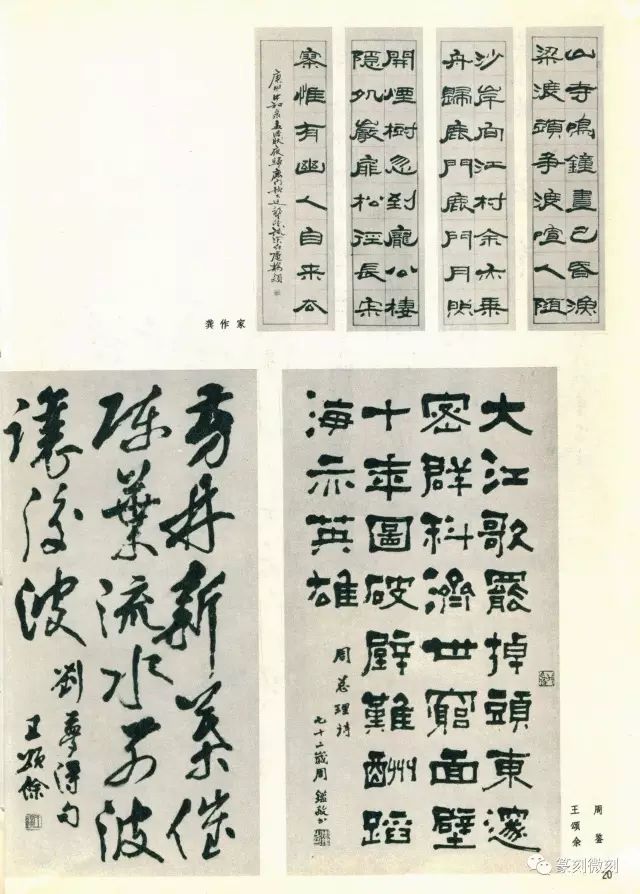 山寺鳴鐘晝已昏漁
梁渡頭爭渡喧人隨
沙岸向江村余亦乘
舟歸鹿門鹿門月照
開煙樹忽到龐公棲
隱処巖扉松徑長寂
寥惟有幽人自来去
龚作家
大江歌罷掉頭東邃
密群科濟世窮面壁
十年圖破壁難酬蹈
海亦英雄
周总理詩
九十二歲周鑑敬书
芳林新葉催
陳葉流水前波
讓後波
劉夢得句
王頌餘
周鉴
王颂余
20
篆刻微刻